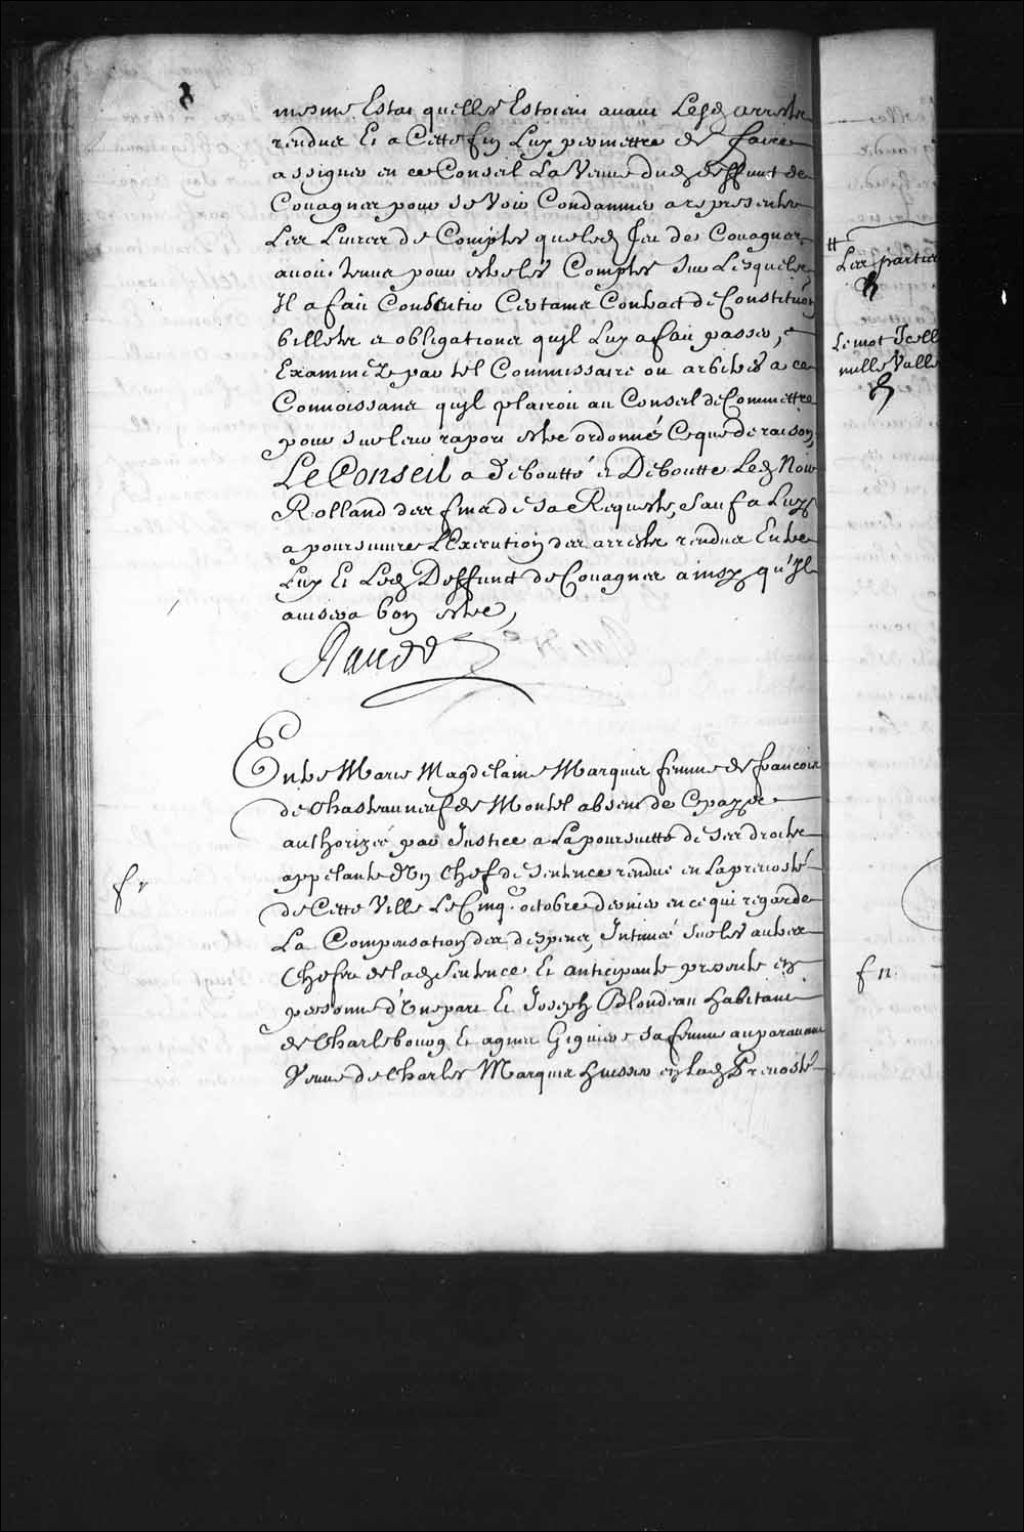 mesme Estat quelles Estoient avant Lesd arrests
rendus Et a Cette fin Luy permettre de faire
assigner en ce Conseil La Veuve dud deffunt de
Couagnes pour se Voir Condamner a representer
Les Livres de Comptes que led feu de Couagnes
avoit tenus pour estre les Comptes sur Lesquels
Il a fait Consentir Certains Contract de Constitution
billets et obligations quyl Luy a fait passer, et
Examinez par tel Commissaire ou arbitres a ce
Connoissans quyl plairoit au Conseil de Commettre
pour sur leur raport estre ordonné Ce que de raison,
Le Conseil a deboutté et Deboutte Led Noir
Rolland des fins de sa Requeste, sauf a Luy
a poursuivre L'Execution des arrests rendus Entre
Luy Et Led Deffunct de Couagnes ainsy qu'Il
avisera bon estre,
Raudot
Entre Marie Magdelaine Marquis femme de francois
de Chasteauneuf de Montel absent de Ce pays
authorizée par Justice a La poursuitte de ses droits
appelante d'Un Chef de sentence rendue en La prevosté
de Cette Ville Le Cinq.e octobre dernier en ce qui regarde
La Compensation des despens, Intimée sur les autres
Chefs de lad sentence Et anticipante presente en
personne d'Une part Et Joseph Blondeau habitant
de Charlebourg Et agnes Gignier sa femme auparavant
Veuve de Charles Marquis huissier en lad Prevosté
fr
Les parties
Le mot Icell
nulle Valle
fn